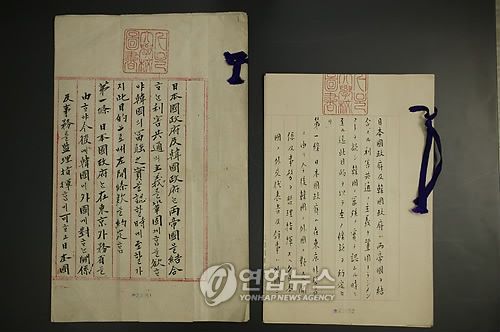 서울大學校圖書
日本國政府及韓國政府는兩帝國을結合
ᄒᆞ는利害共通의主義를鞏固케ᄒᆞᆷ을欲ᄒᆞ
야韓國의富强之實을認ᄒᆞᆯ時에至ᄒᆞ기ᄭᆞ
지此目的으로左開條款을約定ᄒᆞᆷ
第一條 日本國政府는在東京外務省을
由ᄒᆞ야今後에韓國이外國에對ᄒᆞ는關係
及事務를監理指揮ᄒᆞᆷ이可ᄒᆞ고日本國
서울大學校圖書
日本國政府及韓國政府ハ兩帝國ヲ結
合スル利害共通ノ主義ヲ鞏固ナラシメン
コトヲ欲シ韓國ノ富强ノ實ヲ認ムル時ニ
至ル迄此目的ヲ以テ左ノ條款ヲ約定セリ
第一條 日本國政府ハ在東京外務省
ニ由リ今後韓國ノ外國ニ對スル
係及事務ヲ監理指揮スヘク
國ノ外交代表者及領事
연합뉴스
YONHAP NEWS AGENCY